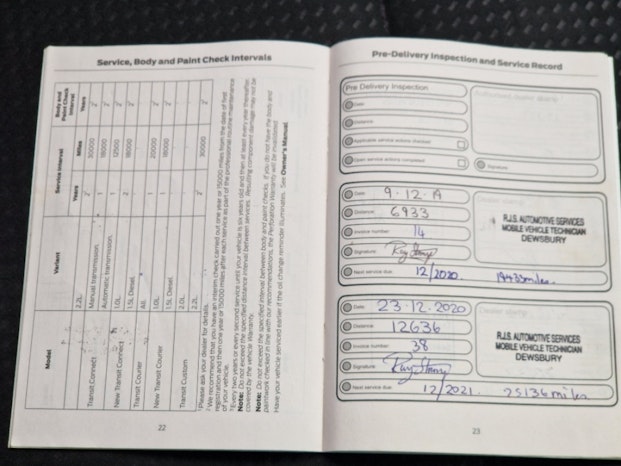 Service, Body and Paint Check Intervals
Model
Variant
Service Interval
Body and Paint Check Interval
Years
Miles
Years
Transit Connect
2.2L
Manual transmission
30000
Automatic transmission
18000
New Transit Connect
1.0L
12000
1.5L Diesel
18000
Transit Courier
All
New Transit Courier
1.0L
20000
1.5L Diesel
18000
Transit Custom
2.0L
2.2L
30000
Please ask your dealer for details.
We recommend that you have an interim check carried out one year or 15000 miles from the date of first
registration and then one year or 15000 miles after each service as part of the professional routine maintenance
of your vehicle.
Every two years or every second service until your vehicle is six years old and then at least every year thereafter.
Note: Do not exceed the specified distance interval between services. Resulting component damage may not be
covered by the vehicle Warranty.
Note: Do not exceed the specified interval between body and paint checks. If you do not have the body and
paintwork checked in line with our recommendations, the Perforation Warranty will be invalidated.
Have your vehicle serviced earlier if the oil change reminder illuminates. See Owner's Manual.
22
Pre-Delivery Inspection and Service Record
Pre Delivery Inspection
Date
Distance
Applicable service actions checked
Open service actions completed
Authorized dealer stamp
Signature
Date
9.12.19
Distance
6933
Invoice number
14
Signature
Next service due
12/2020
R.J.S. AUTOMOTIVE SERVICES
MOBILE VEHICLE TECHNICIAN
DEWSBURY
Date
23.12.2020
Distance
12636
Invoice number
38
Signature
Next service due
12/2021. 25136 miles
Dealer stamp
R.J.S. AUTOMOTIVE SERVICES
MOBILE VEHICLE TECHNICIAN
DEWSBURY
23